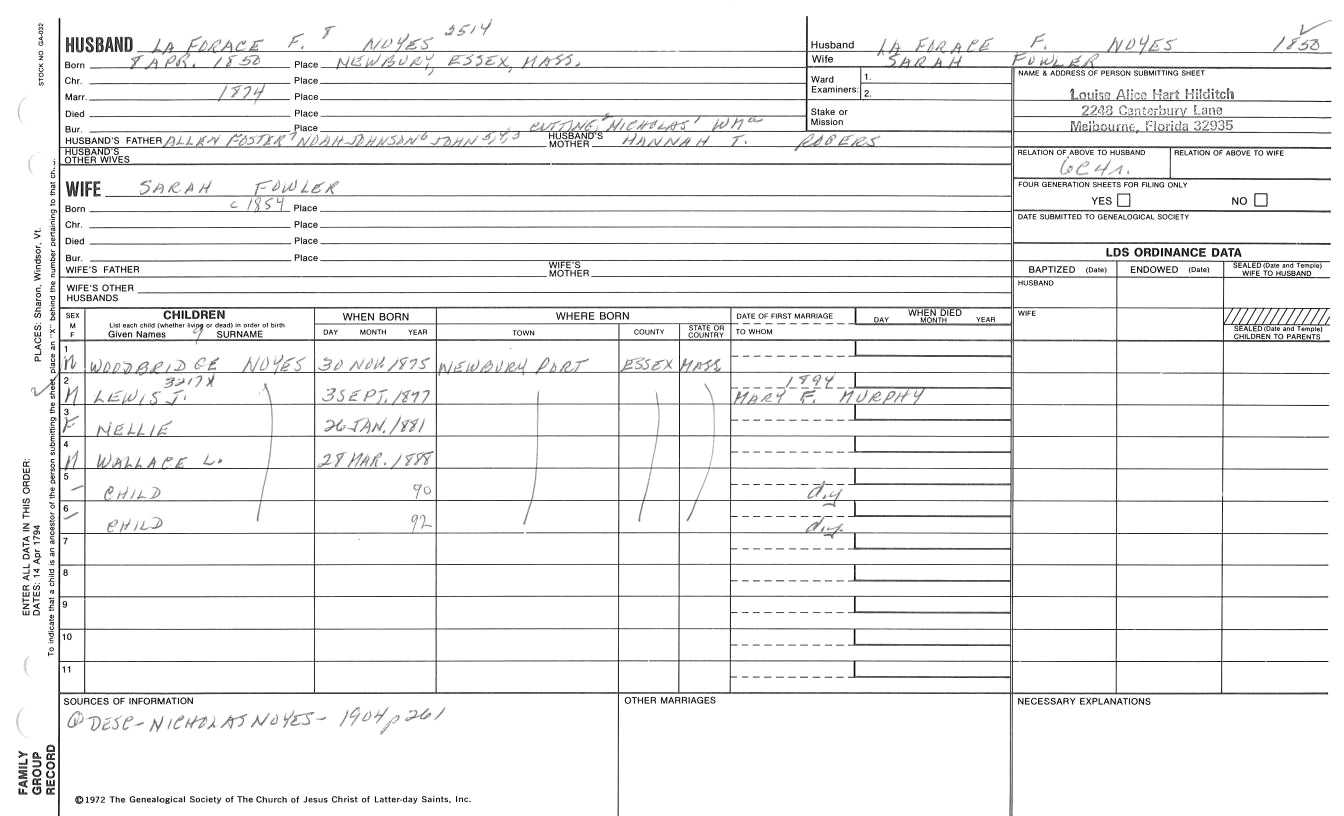 STOCK NO. GA-032
HUSBAND LA FORACE F. 8 NOYES 2514
Born 8 APR. 1850 Place NEWBURY, ESSEX, MASS.
Chr. Place
Marr. 1874 Place
Died Place
Bur. Place
HUSBAND'S FATHER ALLEN FOSTER7 NOAH JOHNSON6 JOHN 5,4,3 CUTTING2 NICHOLAS1 WMa HUSBAND'S MOTHER HANNAH T. ROGERS
HUSBAND'S OTHER WIVES
Husband LA FORACE F. NOYES 1850
Wife SARAH FOWLER
Ward Examiners: 1.
2.
Stake or Mission
NAME & ADDRESS OF PERSON SUBMITTING SHEET
Louise Alice Hart Hilditch
2248 Canterbury Lane
Melbourne, Florida 32935
RELATION OF ABOVE TO HUSBAND RELATION OF ABOVE TO WIFE
6C4r.
FOUR GENERATION SHEETS FOR FILING ONLY
YES NO
DATE SUBMITTED TO GENEALOGICAL SOCIETY
WIFE SARAH FOWLER
Born c 1854 Place
Chr. Place
Died Place
Bur. Place
WIFE'S FATHER WIFE'S MOTHER
WIFE'S OTHER HUSBANDS
LDS ORDINANCE DATA
BAPTIZED (Date) ENDOWED (Date) SEALED (Date and Temple) WIFE TO HUSBAND
HUSBAND
WIFE
SEALED (Date and Temple) CHILDREN TO PARENTS
SEX M F
CHILDREN
List each child (whether living or dead) in order of birth
Given Names 9 SURNAME
WHEN BORN
DAY MONTH YEAR
WHERE BORN
TOWN COUNTY STATE OR COUNTRY
DATE OF FIRST MARRIAGE
TO WHOM
WHEN DIED
DAY MONTH YEAR
1 M WOODBRIDGE NOYES 30 NOV. 1875 NEWBURY PORT ESSEX MASS
2 M LEWIS J. 3217X 3 SEPT. 1877 1894 MARY F. MURPHY
3 F NELLIE 26 JAN. 1881
4 M WALLACE L. 28 MAR. 1888
5 – CHILD 90 d.y
6 – CHILD 92 d.y.
7
8
9
10
11
SOURCES OF INFORMATION
① DESC-NICHOLAS NOYES- 1904 p 261
OTHER MARRIAGES
NECESSARY EXPLANATIONS
©1972 The Genealogical Society of The Church of Jesus Christ of Latter-day Saints, Inc.
FAMILY GROUP RECORD
ENTER ALL DATA IN THIS ORDER:
DATES: 14 Apr 1794
PLACES: Sharon, Windsor, Vt.
To indicate that a child is an ancestor of the person submitting the sheet, place an "X" behind the number pertaining to that ch